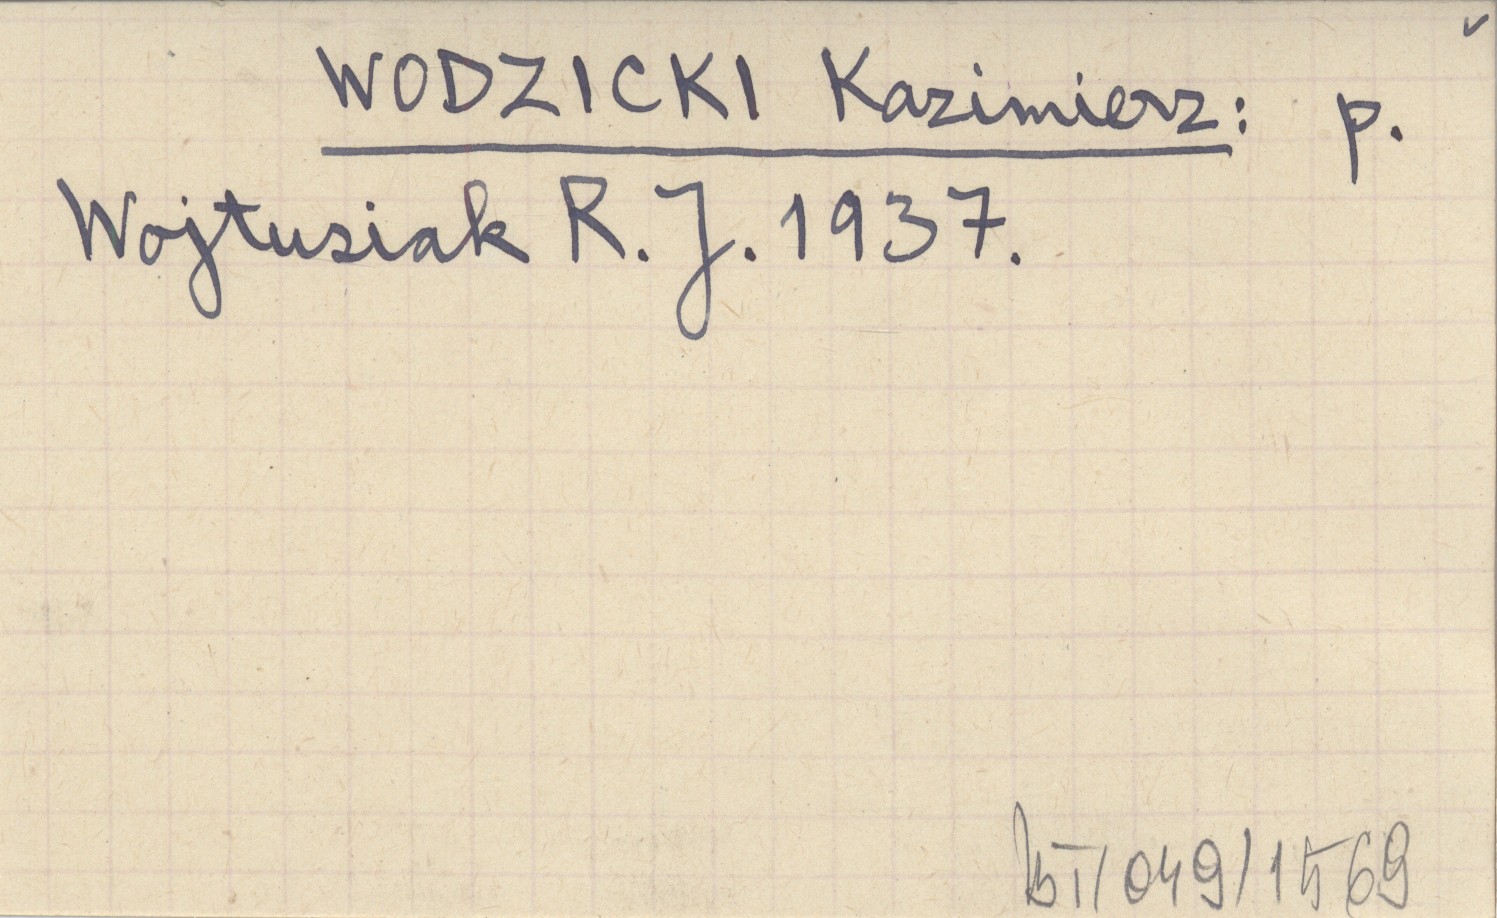 WODZICKI Kazimierz: p.
Wojtusiak R. J. 1937.
/049/1569